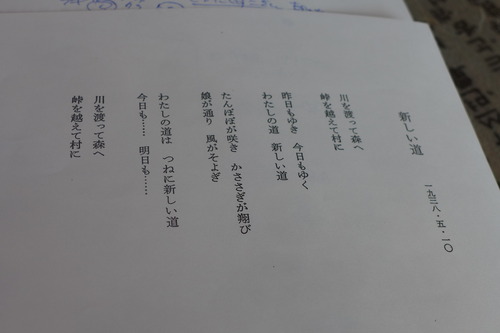 新しい道
一九三八・五・一〇
川を渡って森へ
峠を越えて村に
昨日もゆき 今日もゆく
わたしの道 新しい道
たんぽぽが咲き かささぎが翔び
娘が通り 風がそよぎ
わたしの道は つねに新しい道
今日も…… 明日も……
川を渡って森へ
峠を越えて村に